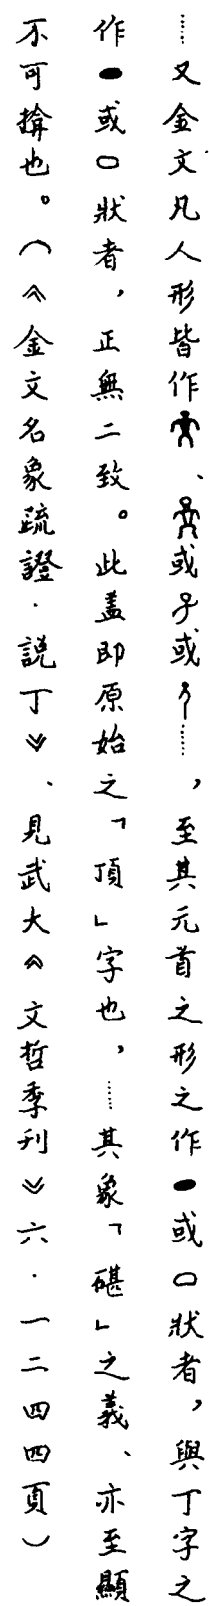 ……又金文凡人形皆作、或子或……,至其元首之形之作●或○狀者,與丁字之
作●或○狀者,正無二致。此蓋即原始之「頂」字也,……其象「碪」之義、亦至顯
不可揜也。(《金文名象疏證·説丁》、見武大《文哲季刊》六·一二四四頁)